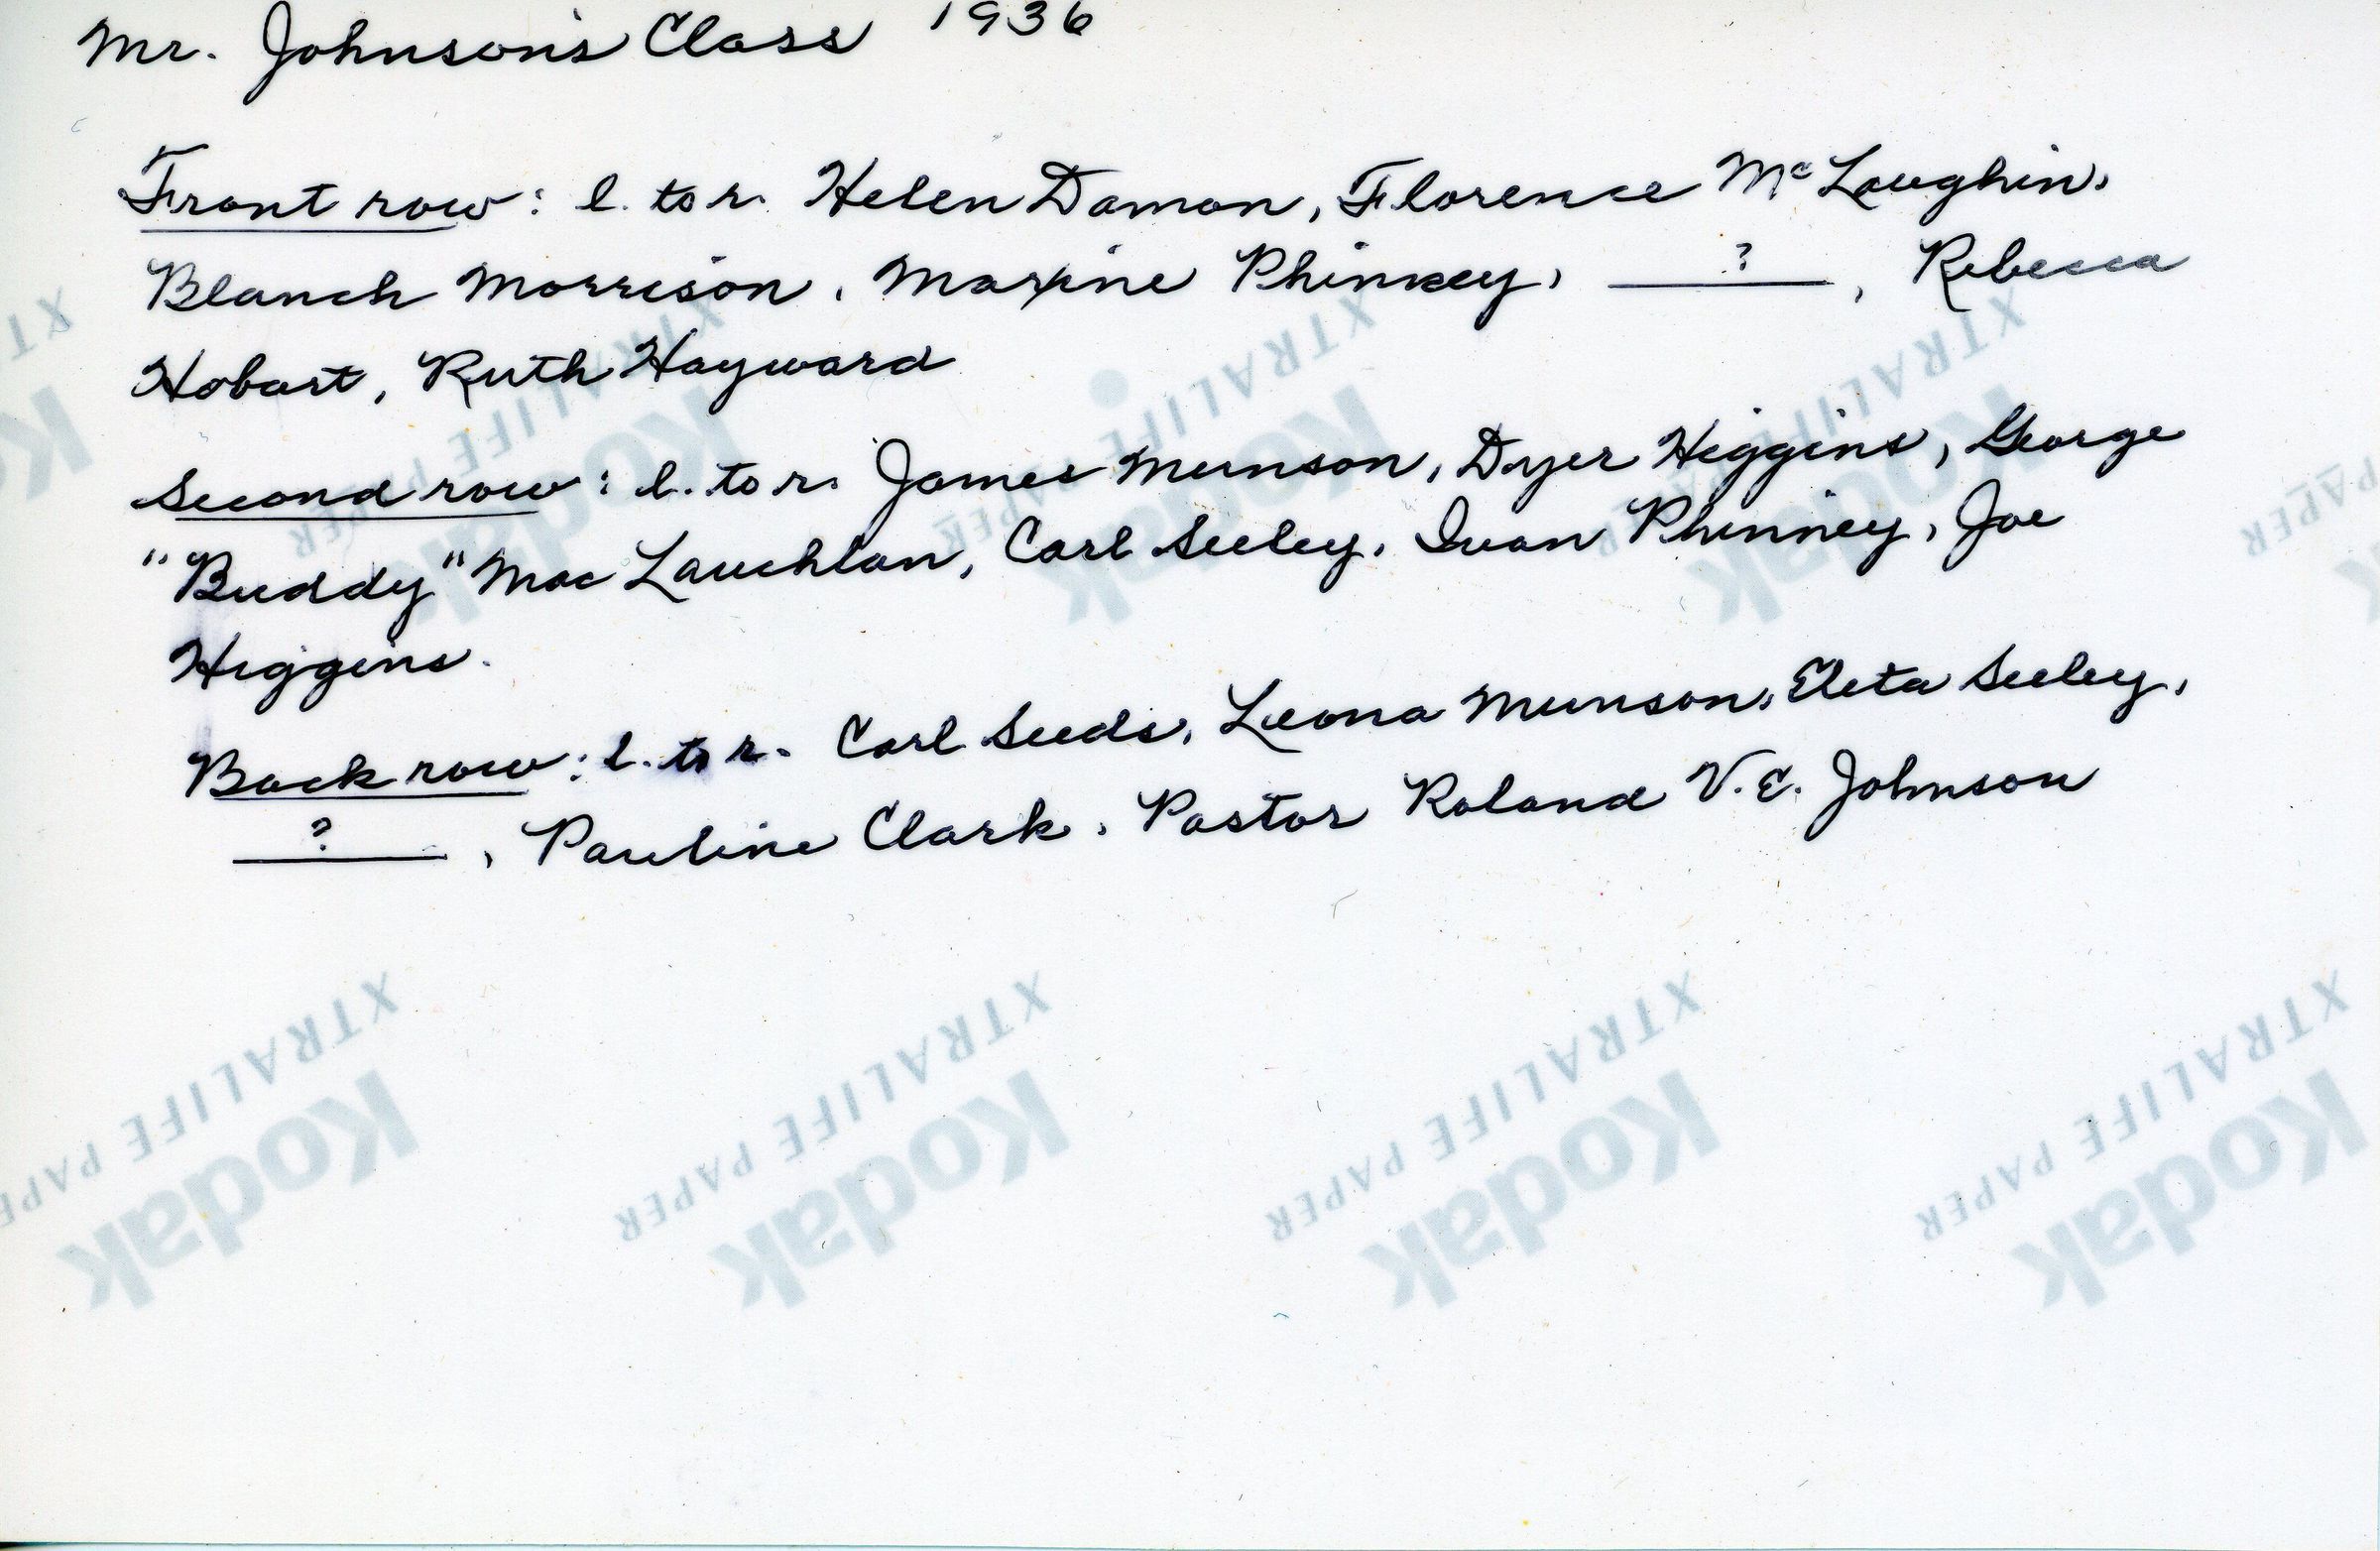 Mr. Johnson's Class 1936
Front row: l. to r. Helen Damon, Florence McLaughin,
Blanch Morrison, Maxine Phinney, ?, Rebecca
Hobart, Ruth Hayward
Second row: l. to r. James Munson, Dyer Higgins, George
"Buddy" MacLauchlan, Carl Seeley, Ivan Phinney, Joe
Higgins.
Back row: l. to r. Carl Seeds, Leona Munson, Eleta Seeley,
?, Pauline Clark, Pastor Roland V.E. Johnson
XTRALIFE PAPER
Kodak
XTRALIFE PAPER
Kodak
XTRALIFE PAPER
Kodak
XTRALIFE PAPER
Kodak
XTRALIFE PAPER
Kodak
XTRALIFE PAPER
Kodak
XTRALIFE PAPER
Kodak